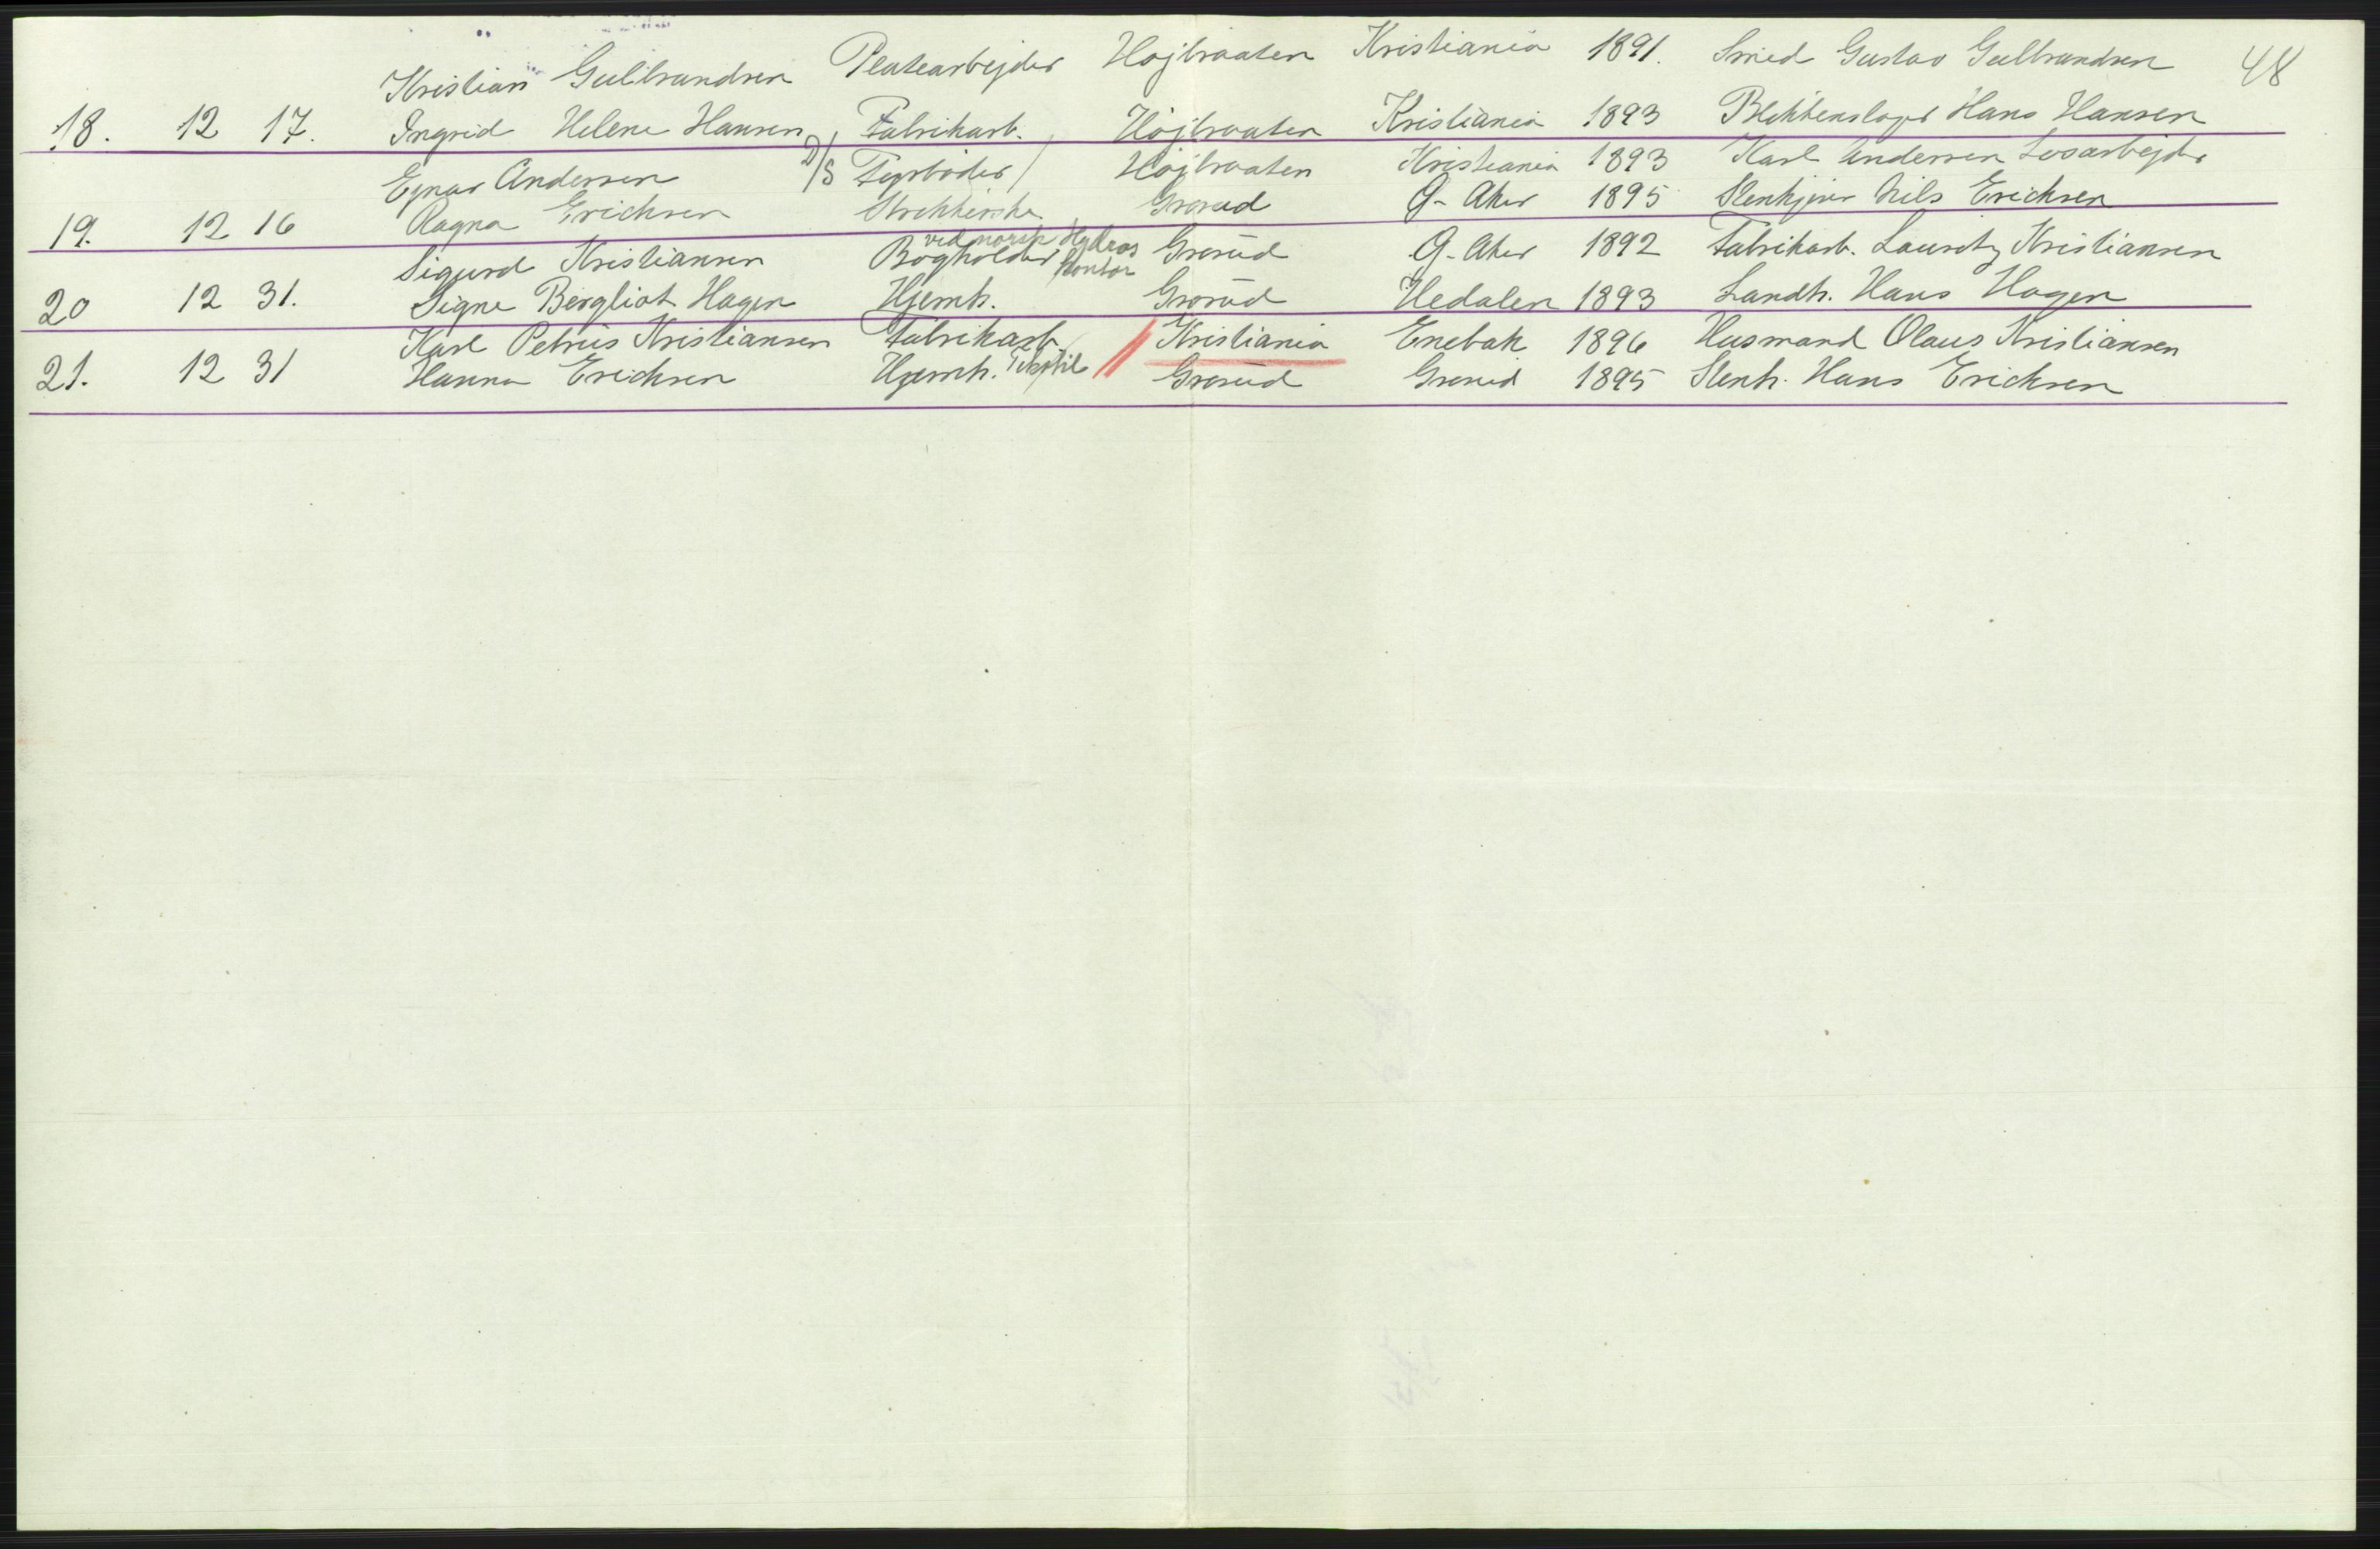 Kristian Gulbrandsen Platearbejder Højbraaten Kristiania 1891. Smed Gustav Gulbrandsen 48
18. 12 17. Ingrid Helene Hansen, Fabrikarb. Højbraaten Kristiania 1893 Blikkenslager Hans Hansen
Ejnar Andersen D/S Fyrbøder / Højbraaten Kristiania 1893 Karl Andersen Løsarbejder
19. 12 16 Ragna Erichsen Strikkerske Grorud Ø. Aker 1895 Stenhjører Nils Erichsen
ved norsk Hydros
Sigurd Kristiansen Bogholder Kontor Grorud Ø. Aker 1892 Fabrikarb. Lauritz Kristiansen
20 12 31. Signe Bergliot Hagen Hjemh. Grorud Hedalen 1893 Landh. Hans Hagen
Karl Petrus Kristiansen Fabrikarb. Kristiania Enebak 1896 Husmand Olaus Kristiansen
21. 12 31 Hanna Erichsen Hjemh. Tekstil Grorud Grorud 1895 Stenh. Hans Erichsen